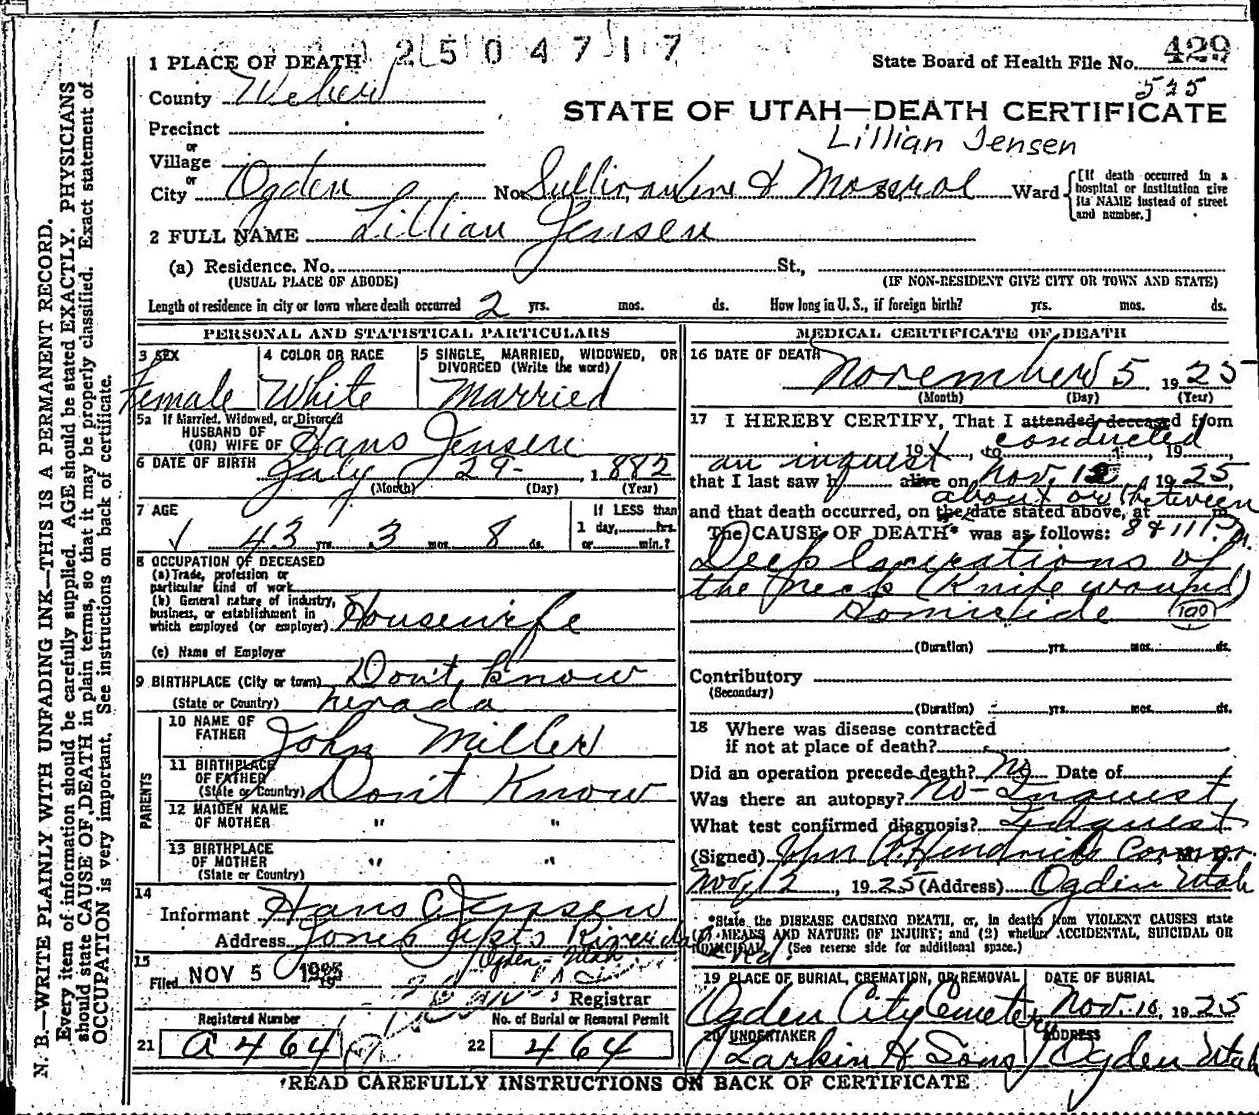 2504717
1 PLACE OF DEATH
State Board of Health File No. 429
525
County Weber
STATE OF UTAH—DEATH CERTIFICATE
Precinct
Lillian Jensen
or
Village
or
City Ogden No. Sullivan Line & Monroe Ward
[If death occurred in a hospital or institution give its NAME instead of street and number.]
2 FULL NAME Lillian Jensen
(a) Residence. No. St.,
(USUAL PLACE OF ABODE) (IF NON-RESIDENT GIVE CITY OR TOWN AND STATE)
Length of residence in city or town where death occurred 2 yrs. mos. ds. How long in U. S., if foreign birth? yrs. mos. ds.
PERSONAL AND STATISTICAL PARTICULARS
3 SEX
Female
4 COLOR OR RACE
White
5 SINGLE, MARRIED, WIDOWED, OR
DIVORCED (Write the word)
Married
5a If Married, Widowed, or Divorced
HUSBAND OF
(OR) WIFE OF Hans Jensen
6 DATE OF BIRTH July 29- 1882
(Month) (Day) (Year)
7 AGE
43 yrs. 3 mos. 8 ds.
If LESS than
1 day, hrs.
or min.?
8 OCCUPATION OF DECEASED
(a) Trade, profession or
particular kind of work
(b) General nature of industry,
business, or establishment in
which employed (or employer) Housewife
(c) Name of Employer
9 BIRTHPLACE (City or town) Don't know
(State or Country) Nevada
PARENTS
10 NAME OF
FATHER John Miller
11 BIRTHPLACE
OF FATHER
(State or Country) Don't Know
12 MAIDEN NAME
OF MOTHER " "
13 BIRTHPLACE
OF MOTHER " "
(State or Country)
14
Informant Hans C Jensen
Address Jones Apts
Ogden Utah
15
Filed NOV 5
Registrar
Registered Number
21 a 464
No. of Burial or Removal Permit
22 464
MEDICAL CERTIFICATE OF DEATH
16 DATE OF DEATH
November 5, 1925
(Month) (Day) (Year)
17 I HEREBY CERTIFY, That I attended deceased from
conducted
an inquest 19 , to , 19 ,
that I last saw h alive on Nov. 12, 1925,
about or between
and that death occurred, on the date stated above, at m.
The CAUSE OF DEATH* was as follows: 8 & 11 P.M.
Deep lacerations of
the neck (Knife wound)
Homicide
(Duration) yrs. mos. ds.
Contributory
(Secondary)
(Duration) yrs. mos. ds.
18 Where was disease contracted
if not at place of death?
Did an operation precede death? No Date of
Was there an autopsy? No- Inquest
What test confirmed diagnosis? Inquest
(Signed) Hendricks Coroner M. D.
Nov 12, 1925 (Address) Ogden Utah
*State the DISEASE CAUSING DEATH, or, in deaths from VIOLENT CAUSES state
(1) MEANS AND NATURE OF INJURY; and (2) whether ACCIDENTAL, SUICIDAL OR
HOMICIDAL. (See reverse side for additional space.)
19 PLACE OF BURIAL, CREMATION, OR REMOVAL
Ogden City Cemetery
DATE OF BURIAL
Nov. 10, 1925
20 UNDERTAKER
Larkin & Sons
ADDRESS
Ogden Utah
READ CAREFULLY INSTRUCTIONS ON BACK OF CERTIFICATE
N. B.—WRITE PLAINLY WITH UNFADING INK—THIS IS A PERMANENT RECORD.
Every item of information should be carefully supplied. AGE should be stated EXACTLY. PHYSICIANS
should state CAUSE OF DEATH in plain terms, so that it may be properly classified. Exact statement of
OCCUPATION is very important. See instructions on back of certificate.